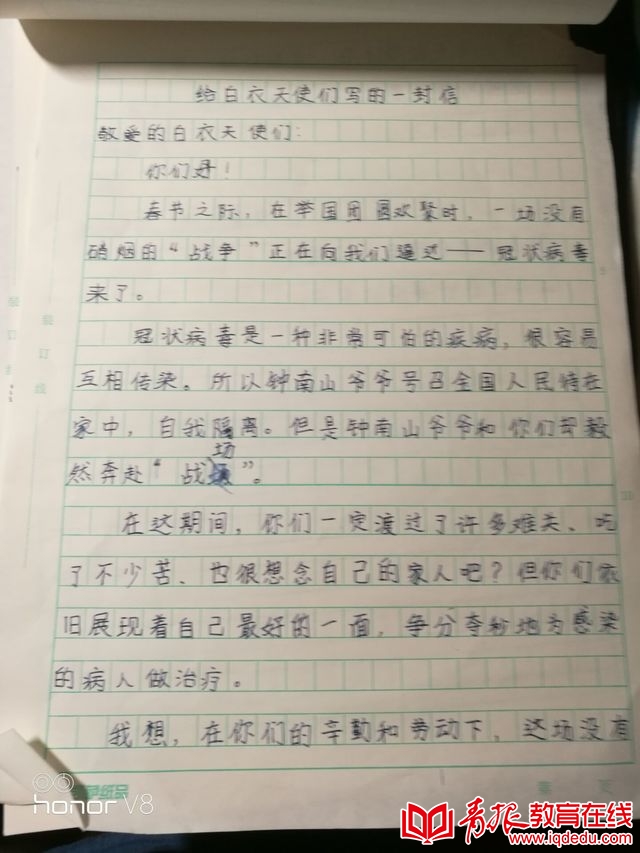 给白衣天使们写的一封信
敬爱的白衣天使们:
你们好!
春节之际,在举国团圆欢聚时,一场没有
硝烟的“战争”正在向我们逼近——冠状病毒
来了。
冠状病毒是一种非常可怕的疾病,很容易
互相传染。所以钟南山爷爷号召全国人民待在
家中,自我隔离。但是钟南山爷爷和你们却毅
然奔赴“战场”。
在这期间,你们一定渡过了许多难关、吃
了不少苦、也很想念自己的家人吧?但你们依
旧展现着自己最好的一面,争分夺秒地为感染
的病人做治疗。
我想,在你们的辛勤和劳动下,这场没有
装订线
honor V8
青报教育在线
www.iqdedu.com